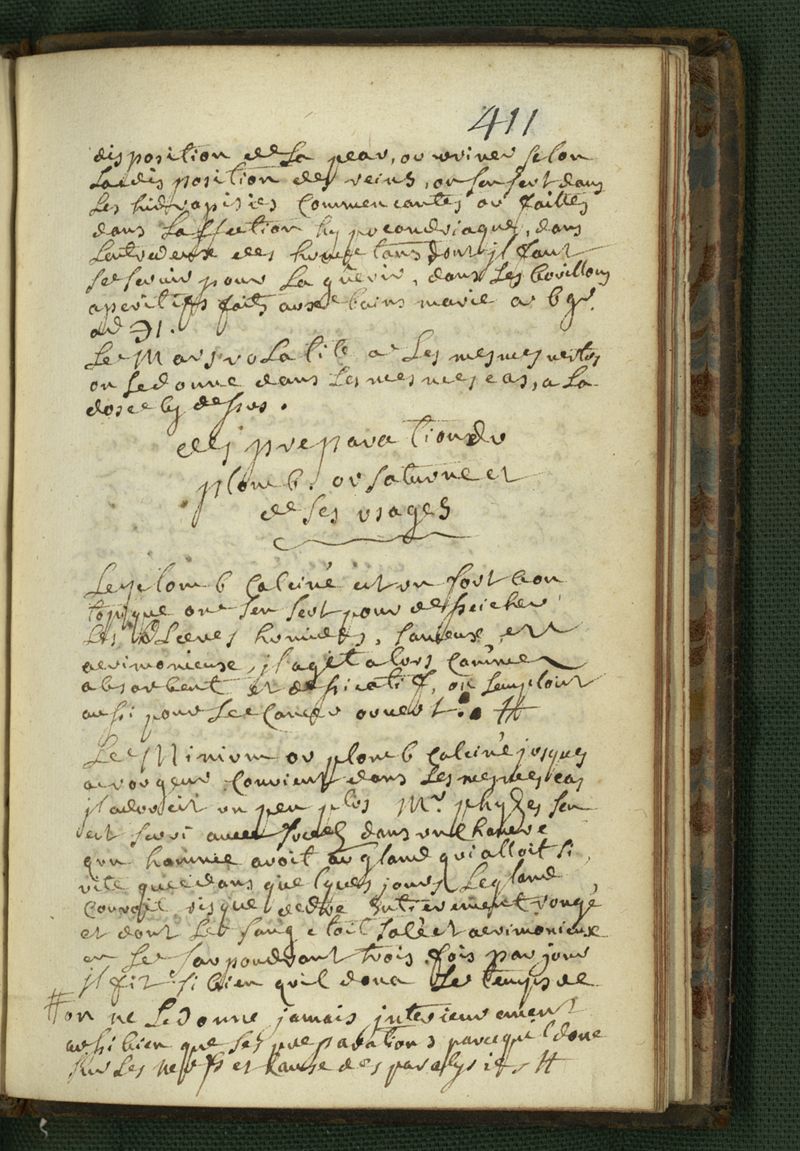 411
disposition de La peau, ou uriner selon
La disposition des reins, on sen sert dans
Les hidropisies Commencantes ou faittes
dans Laffection hypocondriaque, dans
dont jl faut
se servir pour La guerir, dans Les bouillons
aperitifs faits au bains marie a 6 gr.
ad ℈1.
Le Mars volatile a Les mesmes vertus
on Le donne dans Les mesmes cas, a La
dose cy dessus.
des preparations du
plomb. ou saturne et
de ses usages
Le plomb Calciné est un fort bon
topique on sen sert pour desseicher
Les ulceres humides, sanieux et
acrimonieuse, jl agit alors Comme
absorbent et dessicatif, on Lemploiit
aussi pour Le Cancer ouvert. #
Le Minium ou plomb Calciné jusques
a rougeur Convient dans Les mesmes cas
jl adoucit un peu plus Mr. sen
est servi avec succes dans un chancre
qun homme avoit au gland qui alloit si
vite que dans quelques jours Le gland
Couroit risque detre Entierement rongé
et dont Le sang etoit salé et acrimonieux
en Le saupoudrant trois fois par jour
jl fit si bien quil dona Le temps de
# on ne Le donne jamais jnterieurement
aussi bien que ses preparations parcequil done
sur Les nerfs et Cause des paralysies #